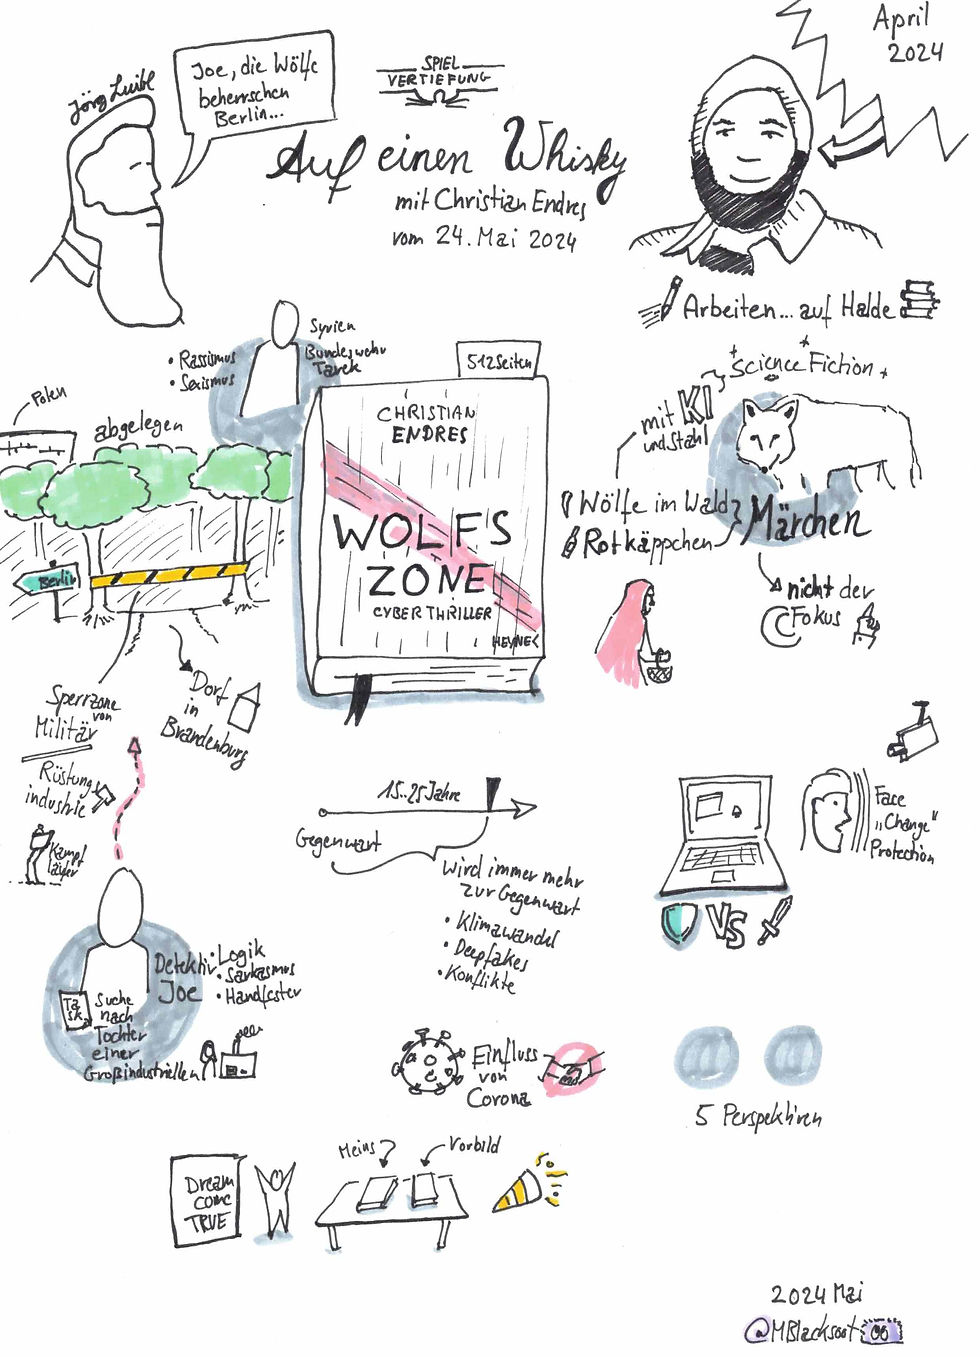 April
2024
Jörg Luibl
Joe, die Wölfe
beherrschen
Berlin...
SPIEL
VERTIEFUNG
Auf einen Whisky
mit Christian Endres
vom 24. Mai 2024
Arbeiten... auf Halde
Syrien
Bundeswehr
Tarek
• Rassismus
• Sexismus
512 Seiten
CHRISTIAN
ENDRES
WOLFS
ZONE
CYBER THRILLER
HEYNE<
Polen
abgelegen
Berlin
Sperrzone
von
Militär
Dorf
in
Brandenburg
Rüstungs
industrie
Kampf
läufer
Science Fiction
mit KI
und Stahl
Wölfe im Wald
Rotkäppchen
Märchen
nicht der
Fokus
15..25 Jahre
Gegenwart
Wird immer mehr
zur Gegenwart
• Klimawandel
• Deepfakes
• Konflikte
Face
„Change"
Protection
VS
Detektiv
Joe
• Logik
• Sarkasmus
• Handfester
Task
Suche
nach
Tochter
einer
Großindustriellen
Einfluss
von
Corona
5 Perspektiven
Dream
come
TRUE
Meins
Vorbild
2024 Mai
@MBlacksoot